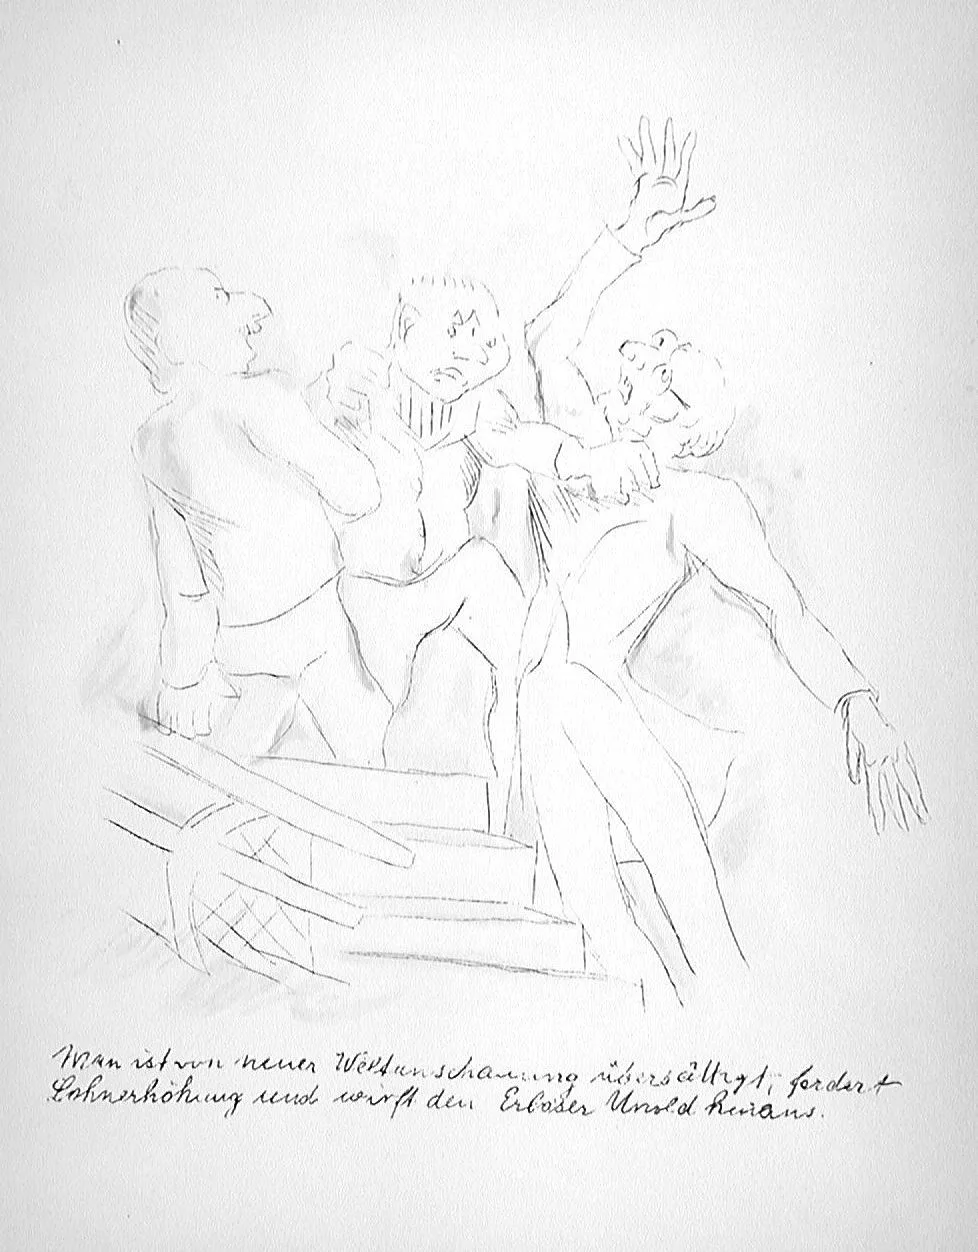 Man ist von neuer Weltanschauung übersättigt, fordert
Lohnerhöhung und wirft den Erlöser Unold hinaus.